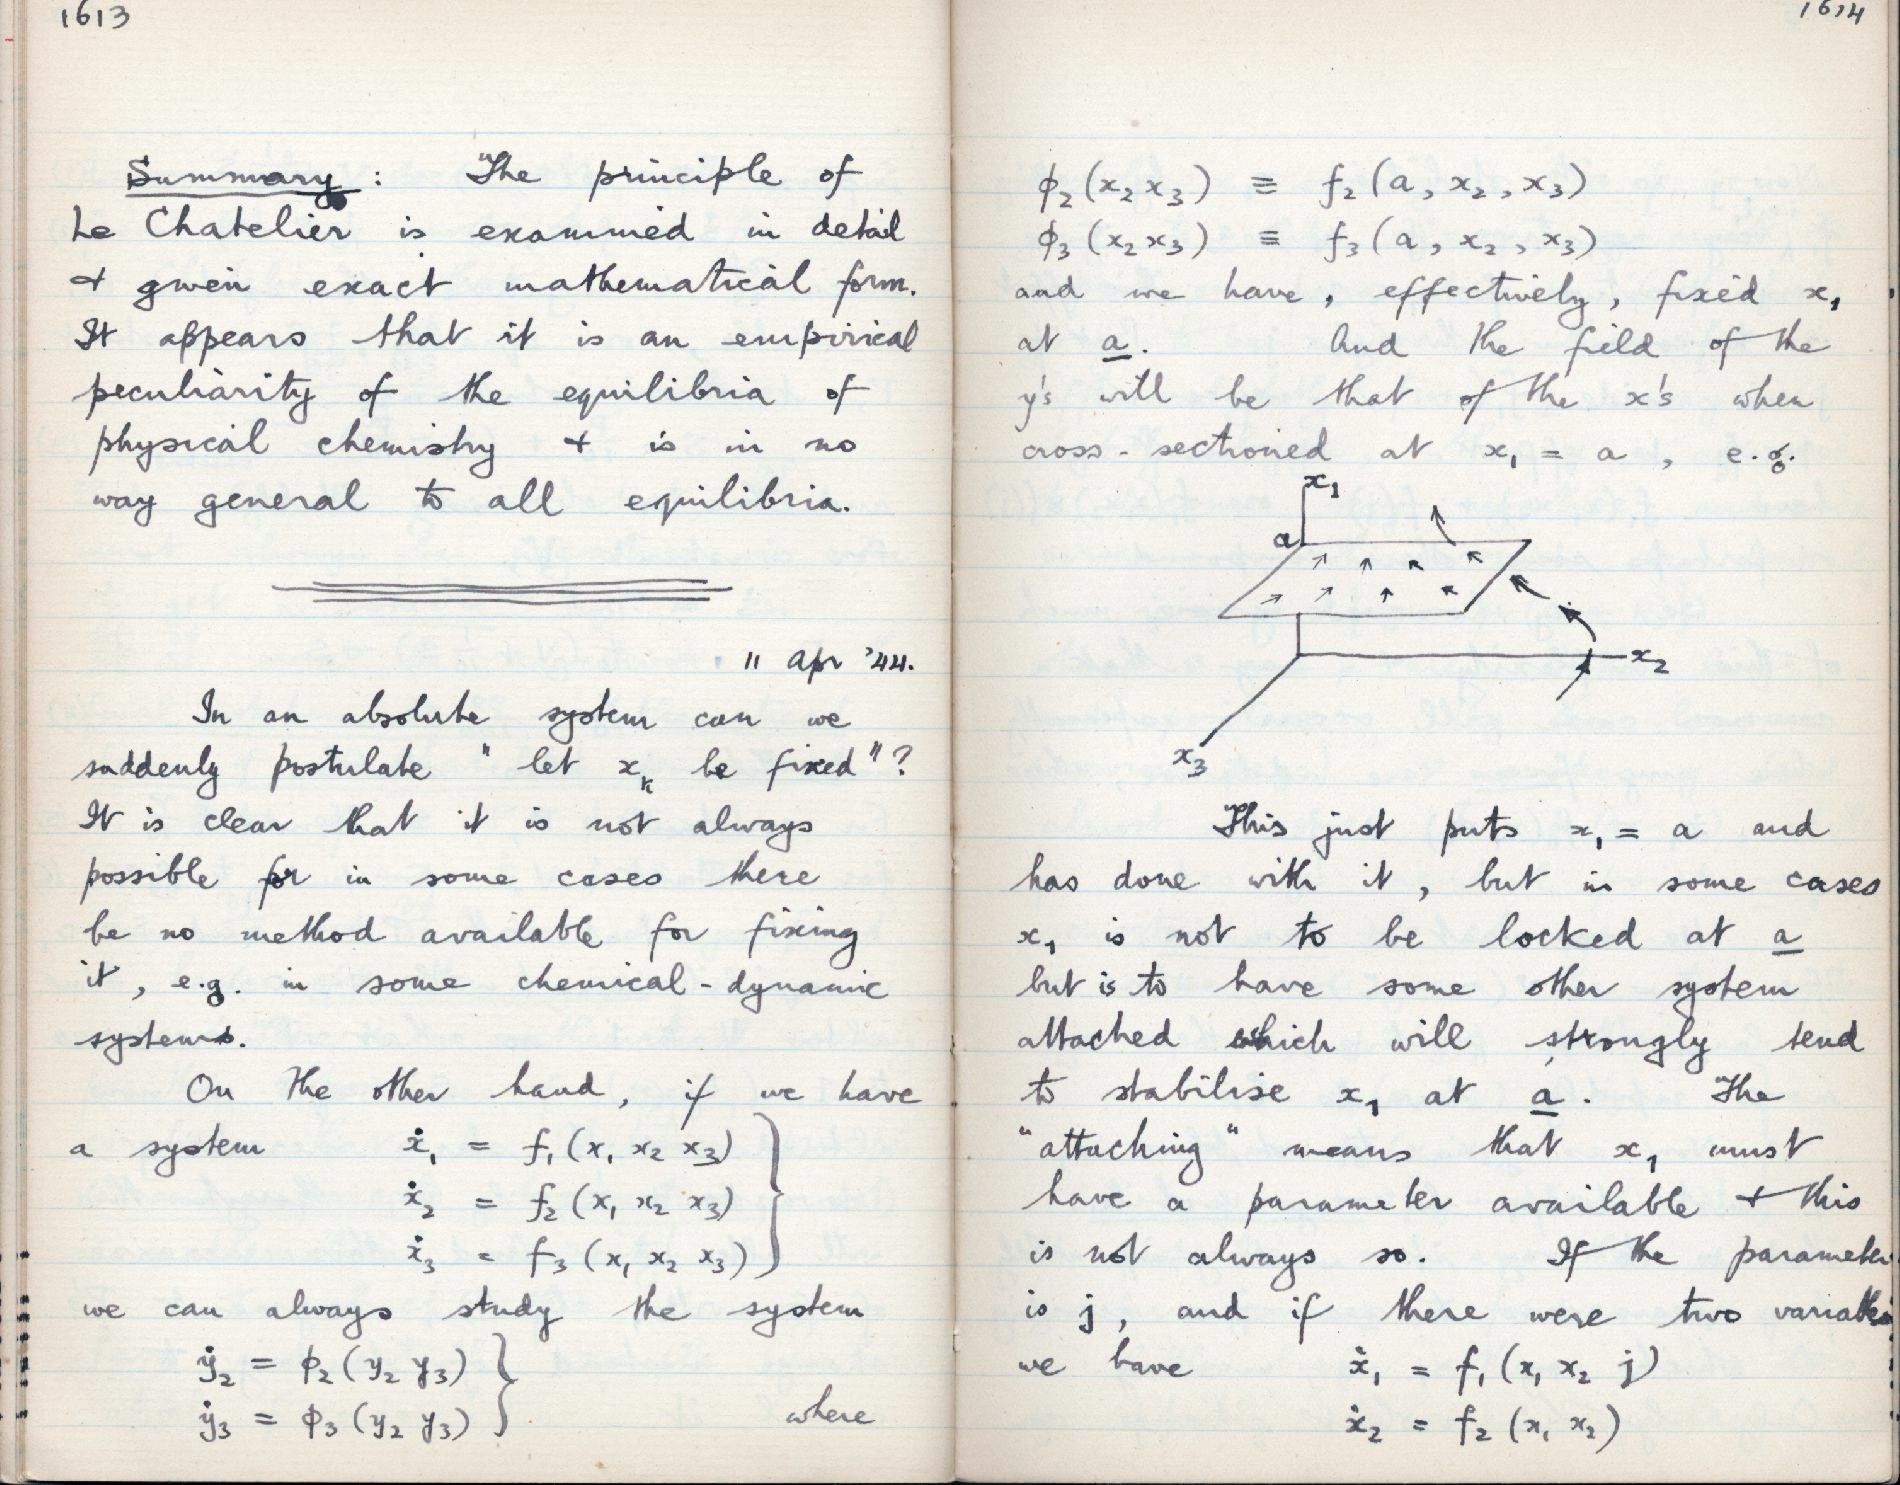 1613
Summary : The principle of
Le Chatelier is examined in detail
& given exact mathematical form.
It appears that it is an empirical
peculiarity of the equilibria of
physical chemistry & is in no
way general to all equilibria.
11 Apr '44.
In an absolute system can we
suddenly postulate "let xₖ be fixed"?
It is clear that it is not always
possible for in some cases there
be no method available for fixing
it, e.g. in some chemical-dynamic
systems.
On the other hand, if we have
a system ẋ₁ = f₁(x₁ x₂ x₃)
ẋ₂ = f₂(x₁ x₂ x₃)
ẋ₃ = f₃(x₁ x₂ x₃) }
we can always study the system
ẏ₂ = ϕ₂(y₂ y₃)
ẏ₃ = ϕ₃(y₂ y₃) } where
1614
ϕ₂(x₂ x₃) ≡ f₂(a, x₂, x₃)
ϕ₃(x₂ x₃) ≡ f₃(a, x₂, x₃)
and we have, effectively, fixed x₁
at a. And the field of the
y's will be that of the x's when
cross-sectioned at x₁ = a, e.g.
x₁
a
x₂
x₃
This just puts x₁ = a and
has done with it, but in some cases
x₁ is not to be locked at a
but is to have some other system
attached which will strongly tend
to stabilise x₁ at a. The
"attaching" means that x₁ must
have a parameter available & this
is not always so. If the parameter
is j, and if there were two variables
we have ẋ₁ = f₁(x₁ x₂ j)
ẋ₂ = f₂(x₁ x₂)